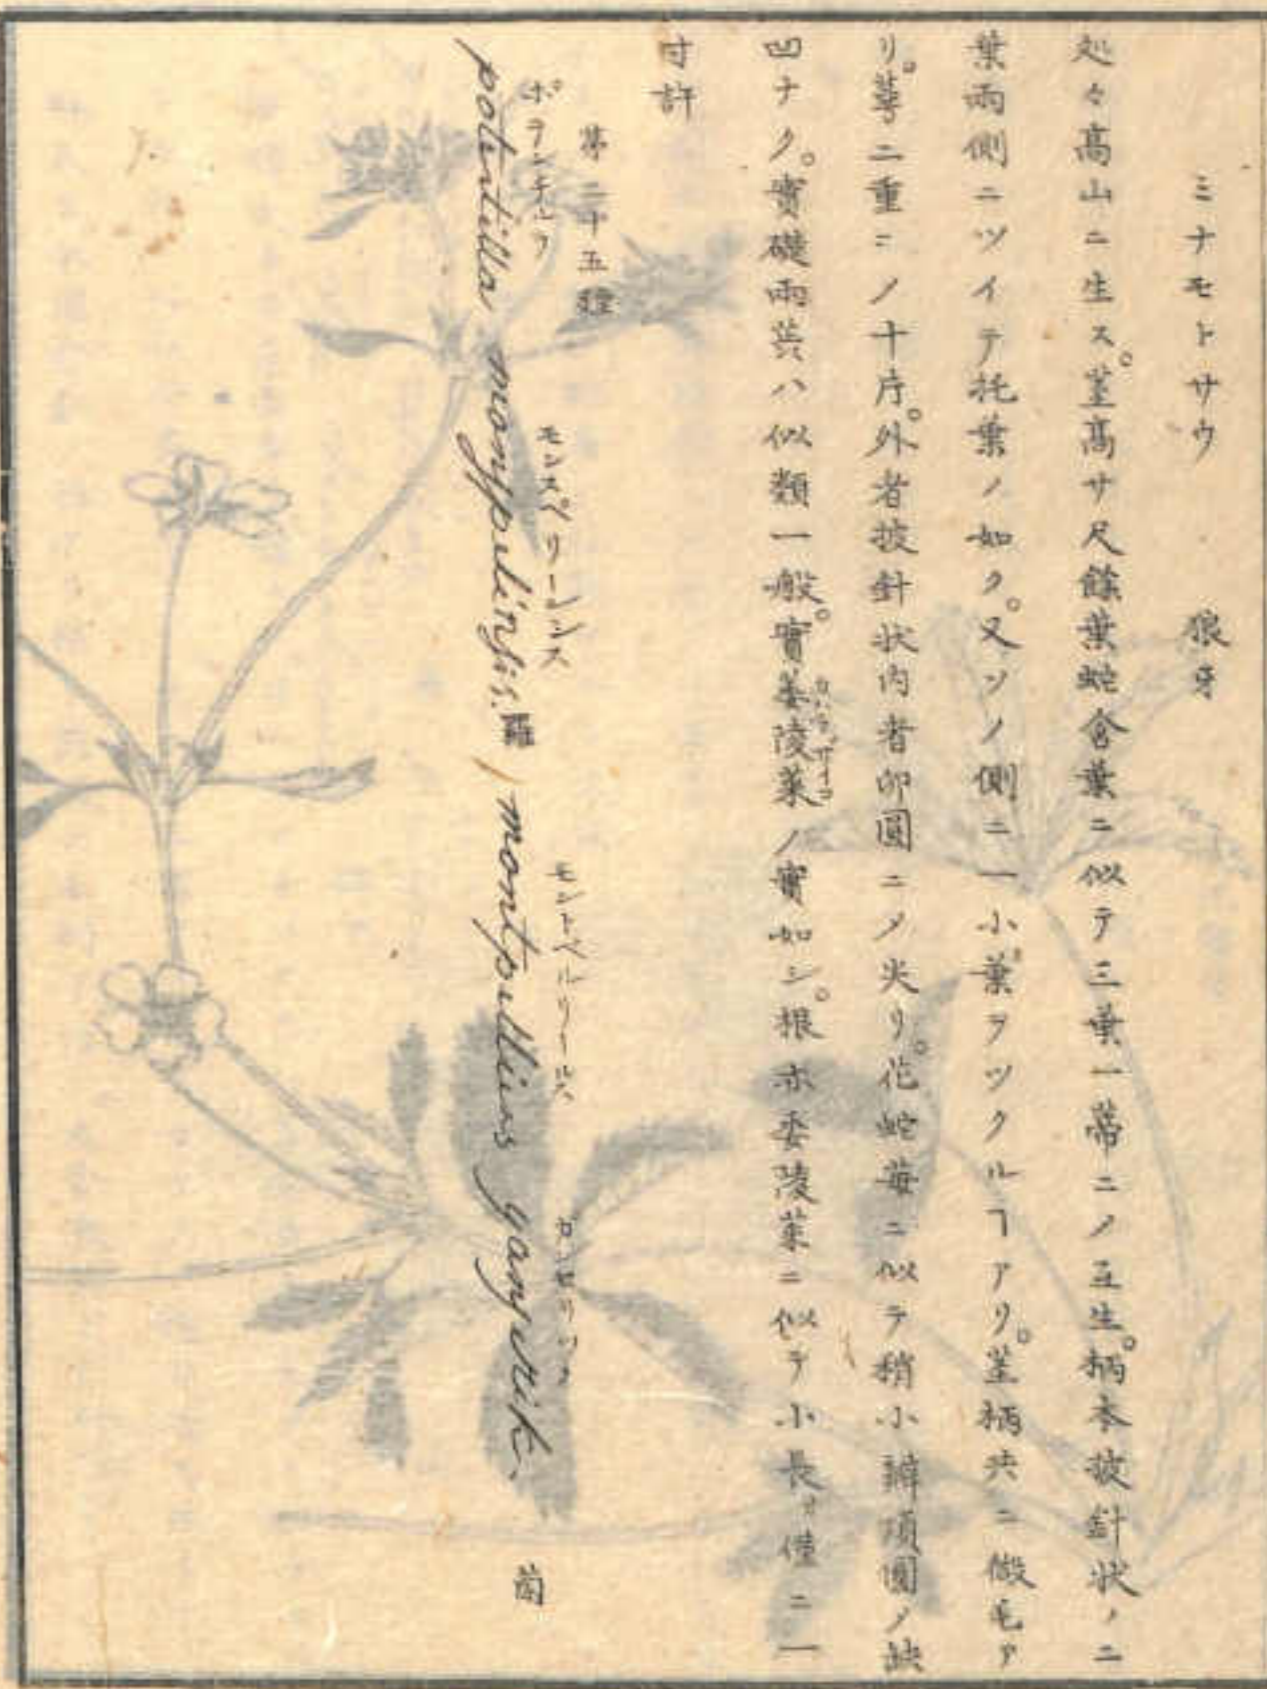 ミナモトサウ　狼牙
処々高山ニ生ス。莖高サ尺餘葉蛇含葉ニ似テ三葉一蒂ニノ互生。柄本披針状ノ二
葉両側ニツイテ托葉ノ如ク。又ソノ側ニ一小葉ヲツクルヿアリ。莖柄共ニ微毛ア
リ。萼二重ニノ十片。外者披針状内者卵圓ニノ尖リ。花蛇苺ニ似テ稍小瓣頂圓ノ缺
凹ナク。實礎両共ハ似類一般。實委陵菜ノ實如シ。根亦委陵菜ニ似テ小長サ僅ニ一
寸許
第二十五種
ポテンチルラ モンスペリーンシス モントペルリールス ガンセリツク
potentilla monspelinsis. 羅 montpelliers ganserik, 蘭